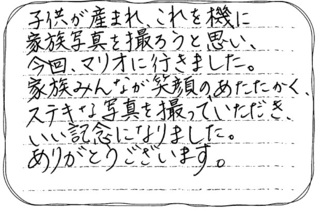 子供が産まれ、これを機に
家族写真を撮ろうと思い、
今回、マリオに行きました。
家族みんなが笑顔のあたたかく、
ステキな写真を撮っていただき、
いい記念になりました。
ありがとうございます。